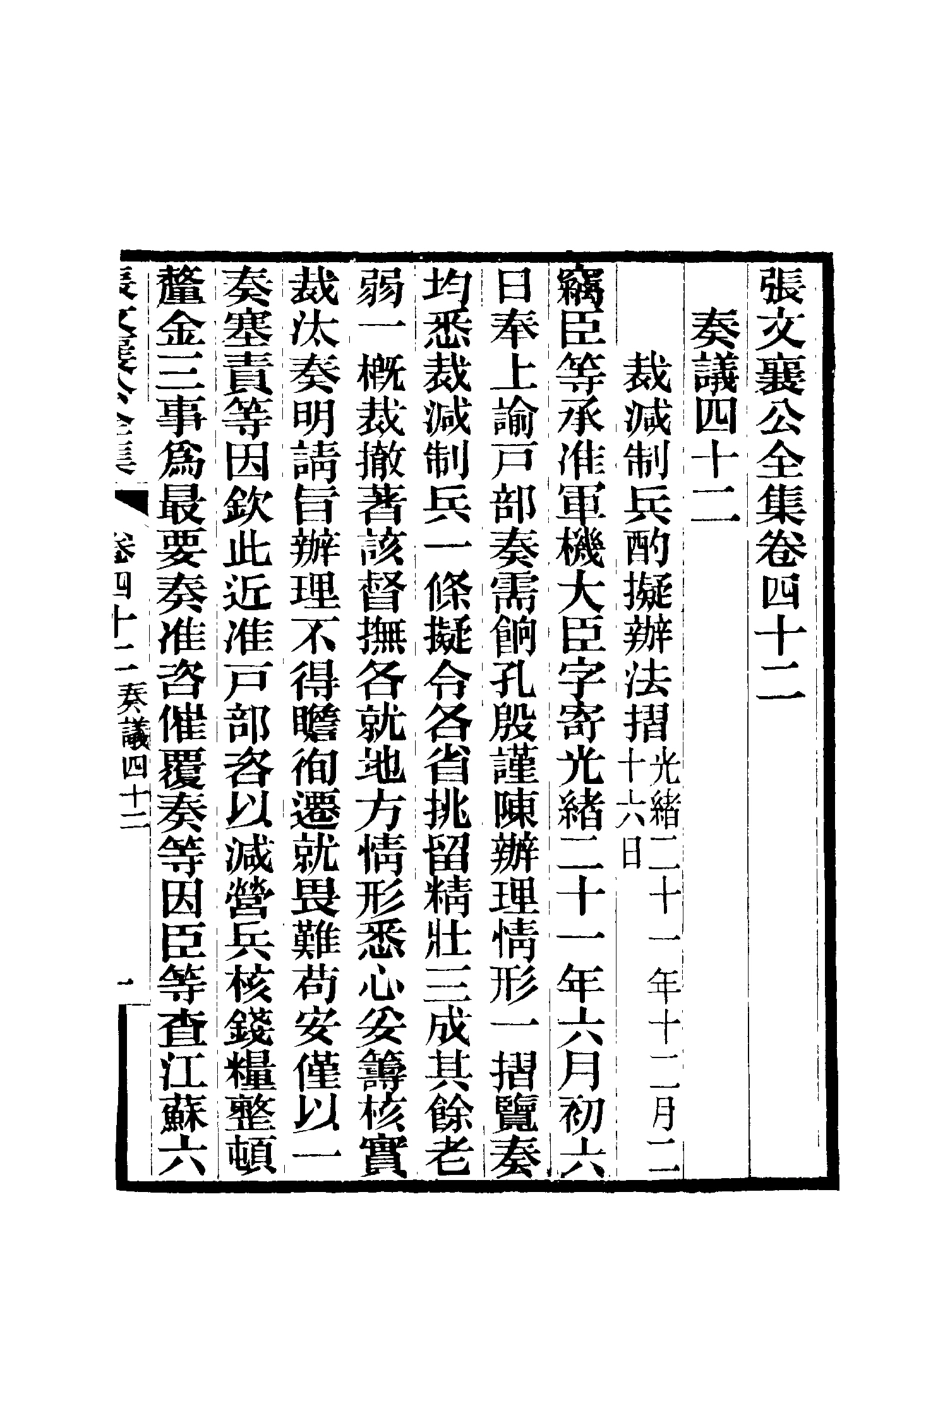 張文襄公全集卷四十二
奏議四十二
裁減制兵酌擬辦法摺光緒二十一年十二月二十六日
竊臣等承准軍機大臣字寄光緒二十一年六月初六
日奉上諭戸部奏需餉孔殷謹陳辦理情形一摺覽奏
均悉裁減制兵一條擬令各省挑留精壯三成其餘老
弱一槪裁撤著該督撫各就地方情形悉心妥籌核實
裁汰奏明請旨辦理不得瞻徇遷就畏難苟安僅以一
奏塞責等因欽此近准戸部咨以減營兵核錢糧整頓
釐金三事爲最要奏准咨催覆奏等因臣等查江蘇六
張文襄公全集 卷四十二奏議四十二 一